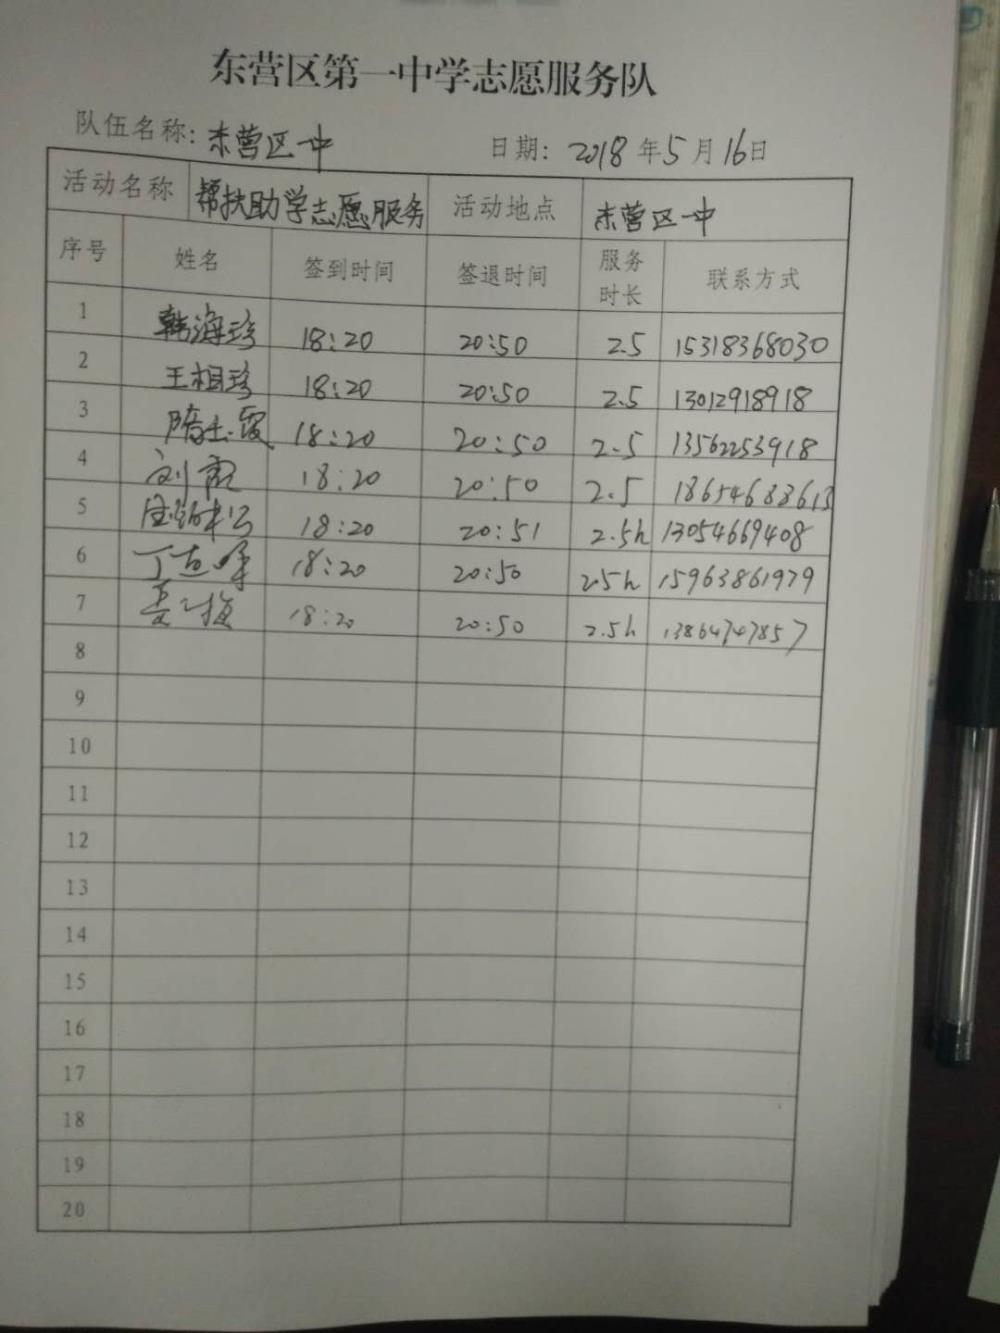 东营区第一中学志愿服务队
队伍名称: 东营区一中 日期: 2018年5月16日
活动名称 帮扶助学志愿服务 活动地点 东营区一中
序号 姓名 签到时间 签退时间 服务时长 联系方式
1 韩海珍 18:20 20:50 2.5 15318368030
2 王相珍 18:20 20:50 2.5 13012918918
3 隋玉霞 18:20 20:50 2.5 13562253918
4 刘霞 18:20 20:50 2.5 18654683613
5 18:20 20:51 2.5h 13054669408
6 丁 18:20 20:50 25h 15963861979
7 18:20 20:50 2.5h 13864747857
8
9
10
11
12
13
14
15
16
17
18
19
20